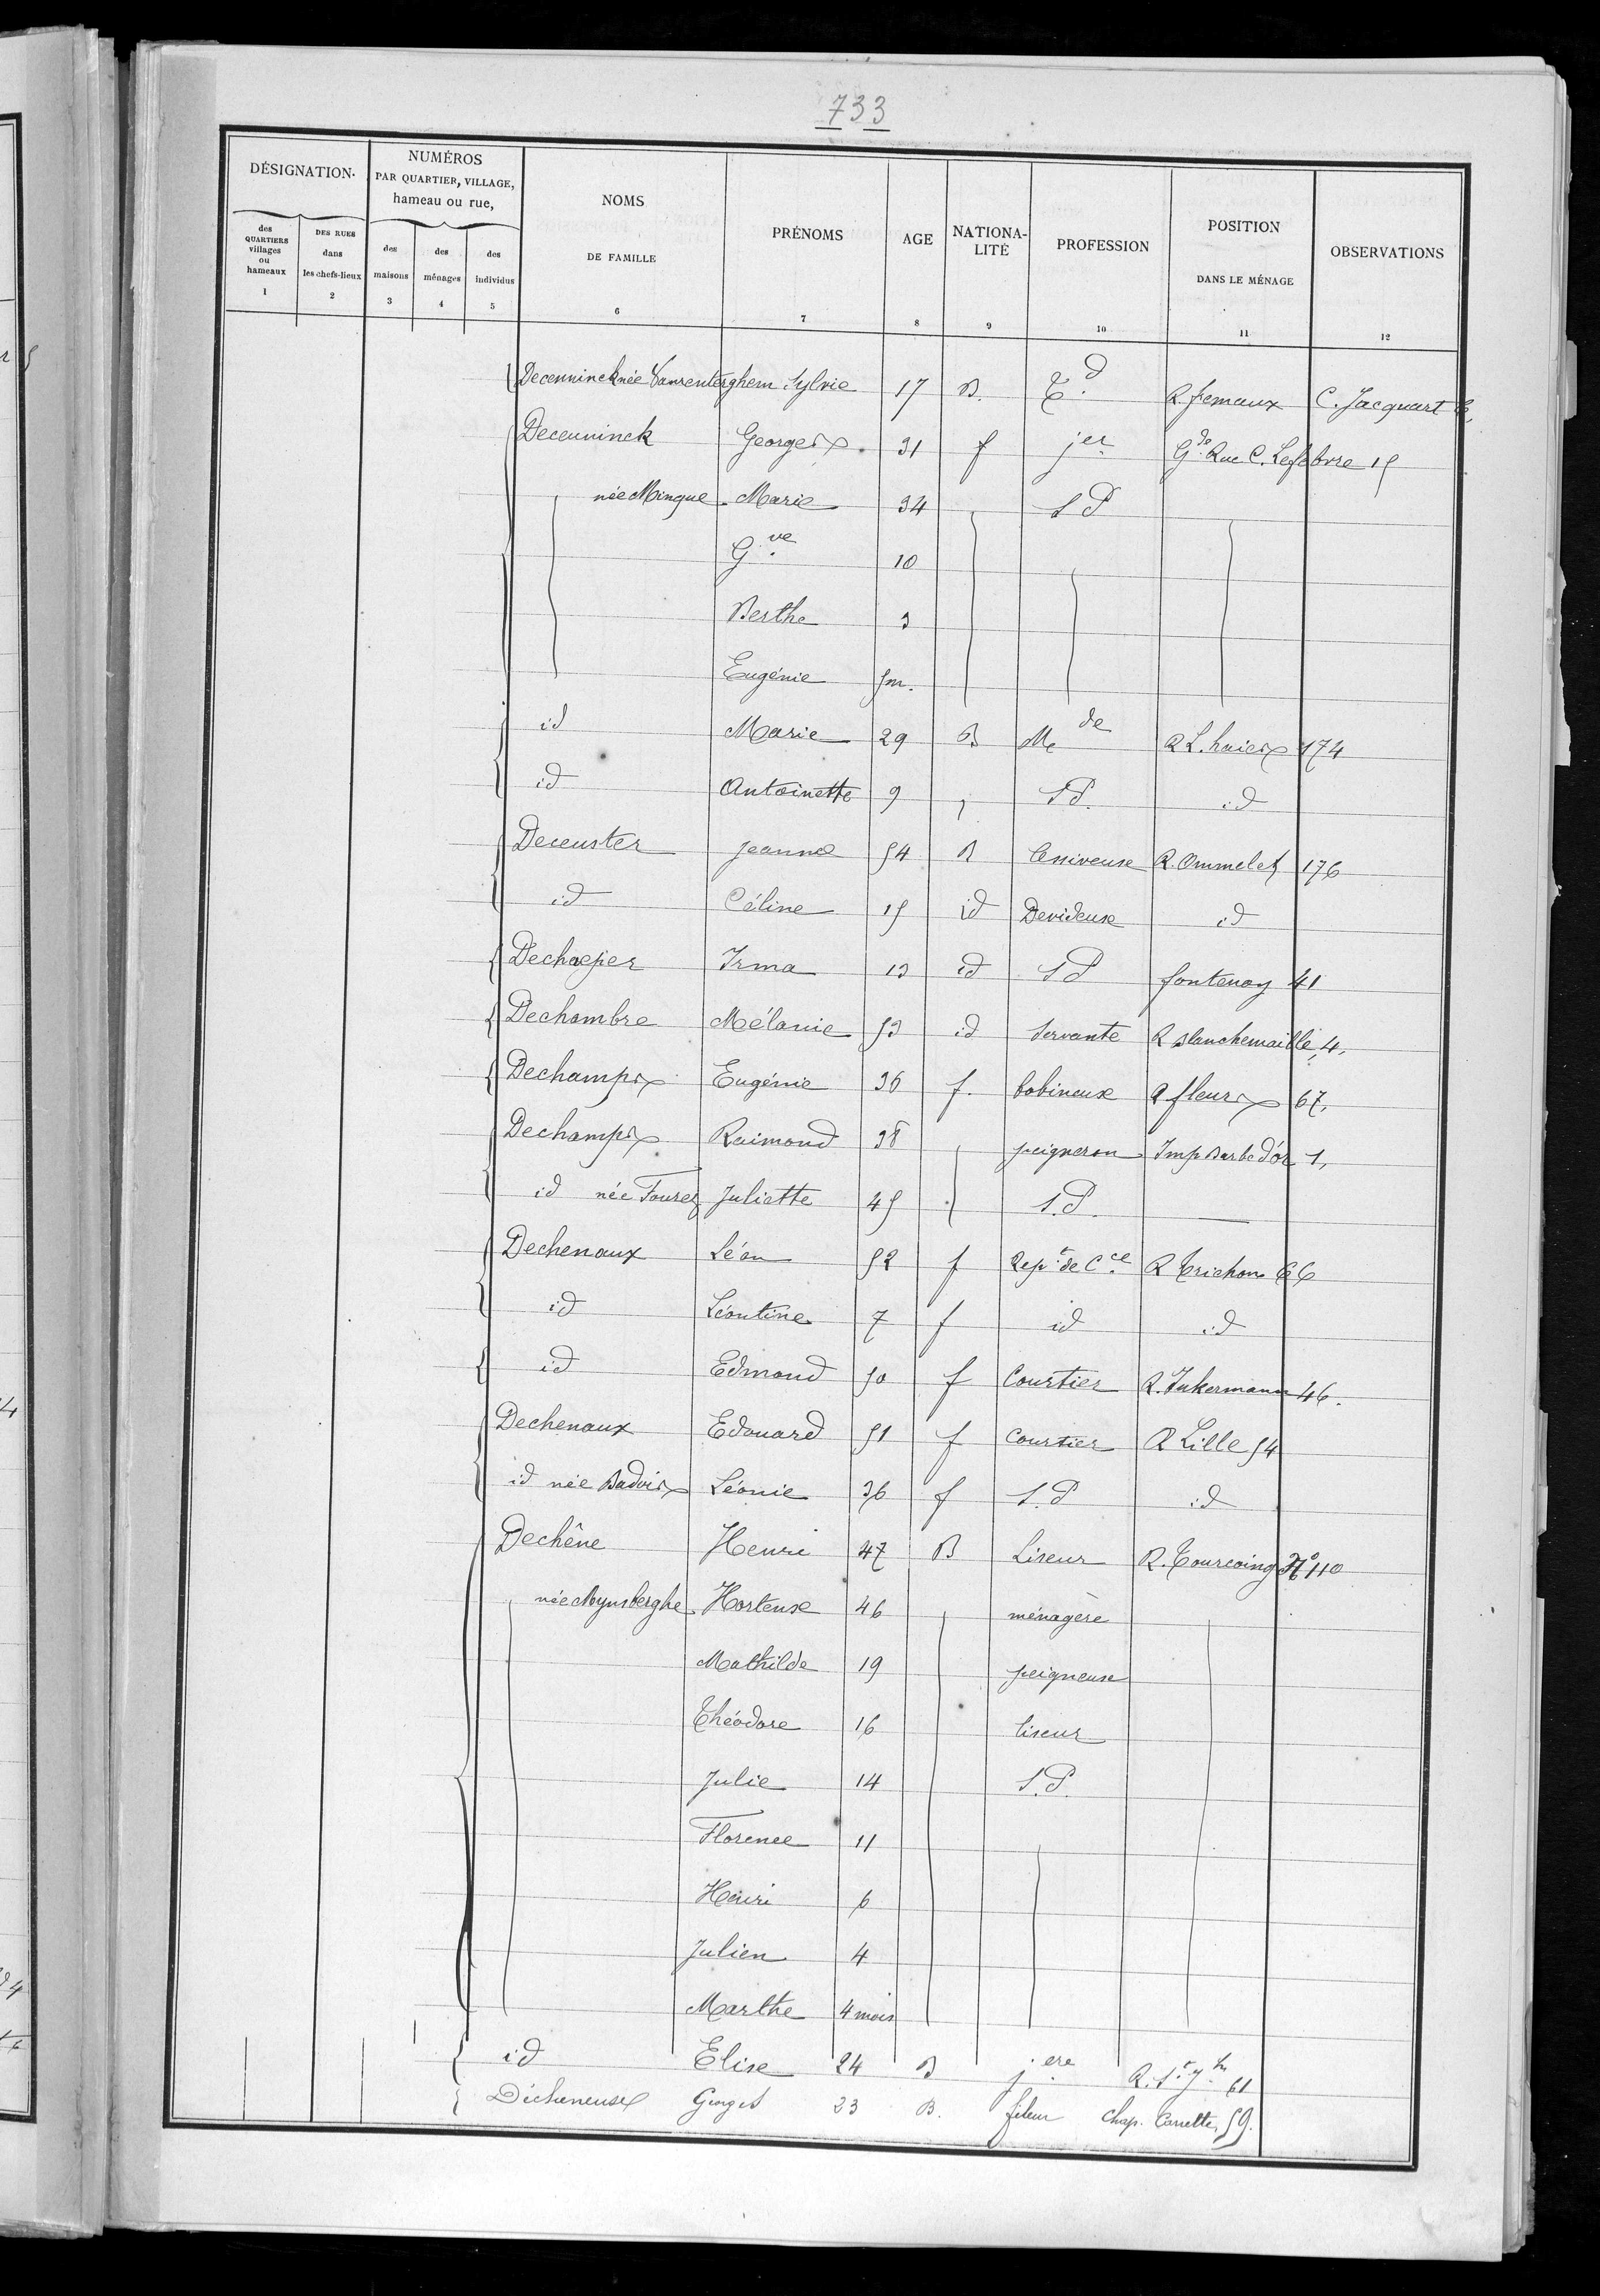 733
DÉSIGNATION. NUMÉROS PAR QUARTIER, VILLAGE, hameau ou rue, NOMS DE FAMILLE PRÉNOMS AGE NATIONA-LITÉ PROFESSION POSITION DANS LE MÉNAGE OBSERVATIONS
des QUARTIERS villages ou hameaux DES RUES dans les chefs-lieux des maisons des ménages des individus
1 2 3 4 5 6 7 8 9 10 11 12
Deceuninck née Vanrenterghem Sylvie 17 B. Td R. femaux C. Jacquart
Deceuninck Georges 31 f jer Gde Rue C. Lefebvre 15
née Mingue Marie 34 S P
Gve 10
Berthe 3
Eugénie 5m.
id Marie 29 B Mde R L. haies 174
id Antoinette 9 S P. id
Deceuster Jeanne 54 B lessiveuse R. Ommelet 176
id Céline 15 id Devideuse id
Dechaeper Irma 13 id S P fontenoy 41
Dechambre Mélanie 53 id Servante R Blanchemaille, 4.
Dechamps Eugénie 36 f. bobineuse R fleurs 67,
Dechamps Raimond 38 peigneron Imp Barbe d'or 1,
id née Fourez Juliette 45 S. P.
Dechenaux Léon 52 f Rept de Cce R Trichon 66
id Léontine 7 f id id
id Edmond 50 f Courtier R. Inkermann 46.
Dechenaux Edouard 51 f courtier R Lille 54
id née Badois Léonie 36 f S. P id
Dechêne Henri 47 B Liseur R. Tourcoing No 110
née Mynsberghe Hortense 46 ménagère
Mathilde 19 peigneuse
Théodore 16 liseur
Julie 14 S. P.
Florence 11
Henri 6
Julien 4
Marthe 4 mois
id Elise 24 B jere R. St Jh 61
Décheneux Georges 23 B. fileur Chap. Carrette, 59.